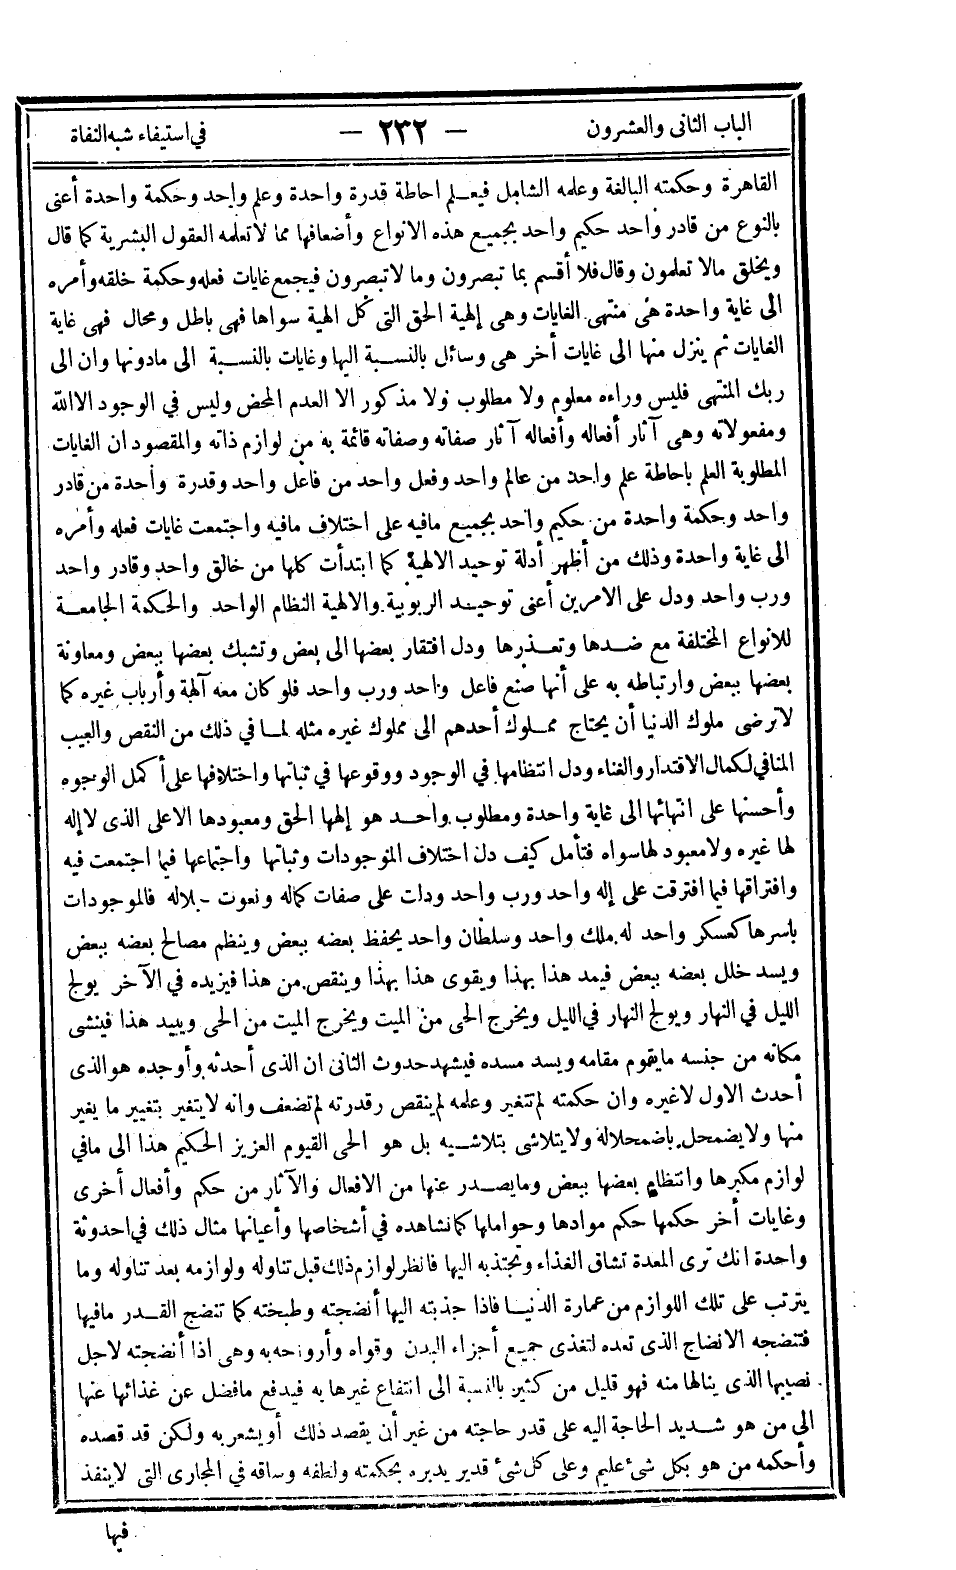 الباب الثانى والعشرون — ٢٣٢ — فى استيفاء شبه النفاة
القاهرة وحكمته البالغة وعلمه الشامل فيعلم احاطة قدرة واحدة وعلم واحد وحكمة واحدة أعنى
بالنوع من قادر واحد حكيم واحد بجميع هذه الانواع وأضعافها مما لاتعلمه العقول البشرية كما قال
ويخلق مالا تعلمون وقال فلا أقسم بما تبصرون وما لا تبصرون فيجمع غايات فعله وحكمة خلقه وأمره
الى غاية واحدة هى منتهى الغايات وهى إلهية الحق التى كل الهية سواها فهى باطل ومحال فهى غاية
الغايات ثم ينزل منها الى غايات أخر هى وسائل بالنسبة اليها وغايات بالنسبة الى مادونها وان الى
ربك المنتهى فليس وراءه معلوم ولا مطلوب ولا مذكور الا العدم المحض وليس في الوجود الاالله
ومفعولاته وهى آثار أفعاله وأفعاله آثار صفاته وصفاته قائمة به من لوازم ذاته والمقصود ان الغايات
المطلوبة العلم باحاطة علم واحد من عالم واحد وفعل واحد من فاعل واحد وقدرة واحدة من قادر
واحد وحكمة واحدة من حكيم واحد بجميع مافيه على اختلاف مافيه واجتمعت غايات فعله وأمره
الى غاية واحدة وذلك من أظهر أدلة توحيد الالهية كما ابتدأت كلها من خالق واحد وقادر واحد
ورب واحد ودل على الامرين أعنى توحيد الربوبية والالهية النظام الواحد والحكمة الجامعة
للانواع المختلفة مع ضدها وتعذرها ودل افتقار بعضها الى بعض وتشبك بعضها ببعض ومعاونة
بعضها ببعض وارتباطه به على أنها صنع فاعل واحد ورب واحد فلو كان معه آلهة وأرباب غيره كما
لاترضى ملوك الدنيا أن يحتاج مملوك أحدهم الى مملوك غيره مثله لما في ذلك من النقص والعيب
المنافي لكمال الاقتدار والغناء ودل انتظامها في الوجود ووقوعها في ثباتها واختلافها على أكمل الوجوه
وأحسنها على انتهائها الى غاية واحدة ومطلوب واحد هو إلهها الحق ومعبودها الاعلى الذى لاإله
لها غيره ولامعبود لها سواه فتأمل كيف دل اختلاف الموجودات وثباتها واجتماعها فيما اجتمعت فيه
وافتراقها فيما افترقت على إله واحد ورب واحد ودلت على صفات كماله ونعوت جلاله فالموجودات
بأسرها كعسكر واحد له ملك واحد وسلطان واحد يحفظ بعضه ببعض وينظم مصالح بعضه ببعض
ويسد خلل بعضه ببعض فيمد هذا بهذا ويقوى هذا بهذا وينقص من هذا فيزيده في الآخر يولج
الليل في النهار ويولج النهار في الليل ويخرج الحى من الميت ويخرج الميت من الحى ويبيد هذا فينشى
مكانه من جنسه مايقوم مقامه ويسد مسده فيشهد حدوث الثانى ان الذى أحدثه وأوجده هو الذى
أحدث الاول لاغيره وان حكمته لم تتغير وعلمه لم ينقص وقدرته لم تضعف وانه لا يتغير بتغيير ما يغير
منها ولايضمحل باضمحلاله ولايتلاشى بتلاشيه بل هو الحى القيوم العزيز الحكيم هذا الى مافي
لوازم مكبرها وانتظام بعضها ببعض ومايصدر عنها من الافعال والآثار من حكم وأفعال أخرى
وغايات أخر حكمها حكم موادها وحواملها كما نشاهده في أشخاصها وأعيانها مثال ذلك في احدوثة
واحدة انك ترى المعدة تشاق الغذاء وتجتذبه اليها فانظر لوازم ذلك قبل تناوله ولوازمه بعد تناوله وما
يترتب على تلك اللوازم من عمارة الدنيا فاذا جذبته اليها أنضجته وطبخته كما تنضج القدر مافيها
فتنضجه الانضاج الذى تعده لتغذى جميع أجزاء البدن وقواه وأرواحه به وهى اذا أنضجته لاجل
نصيبها الذى ينالها منه فهو قليل من كثير بالنسبة الى انتفاع غيرها به فيدفع مافضل عن غذائها عنها
الى من هو شديد الحاجة اليه على قدر حاجته من غير أن يقصد ذلك أو يشعر به ولكن قد قصده
وأحكمه من هو بكل شئ عليم وعلى كل شئ قدير يدبره بحكمته ولطفه وساقه في المجارى التى لاينفذ
فيها